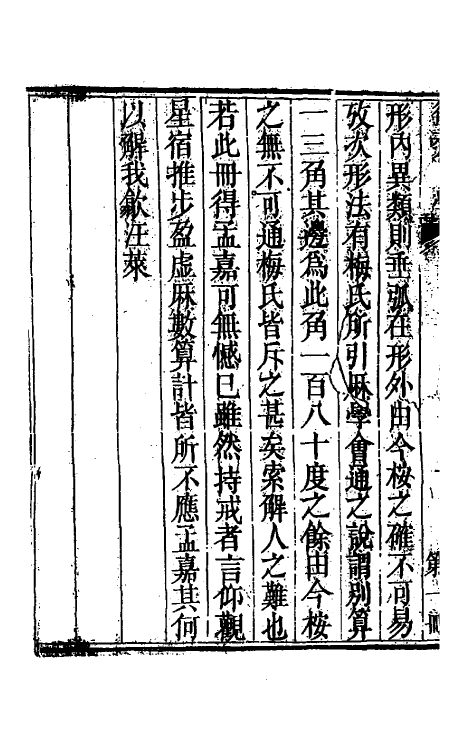 形內異類則垂弧在形外由今桉之確不可易
攷次形法有梅氏所引厤學會通之說謂別算
一三角其邊爲此角一百八十度之餘由今桉
之無不可通梅氏皆斥之甚矣索解人之難也
若此冊得孟嘉可無憾已雖然持戒者言仰觀
星宿推步盈虛厤數算計皆所不應孟嘉其何
以解我歟汪萊
第一冊